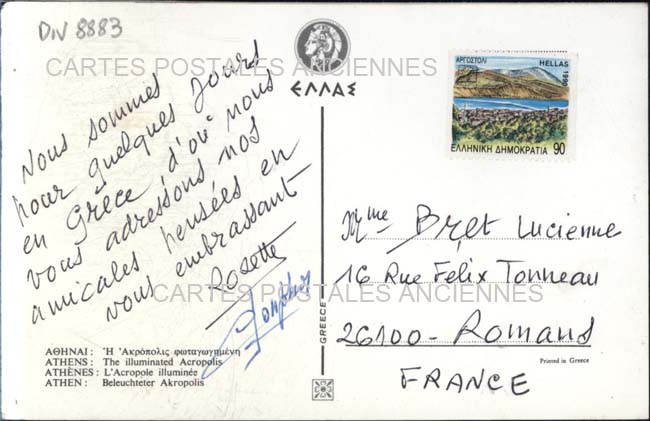 DIV 8883
CARTES POSTALES ANCIENNES
ΕΛΛΑΣ
ΑΡΓΟΣΤΟΛΙ
HELLAS
1990
ΕΛΛΗΝΙΚΗ ΔΗΜΟΚΡΑΤΙΑ 90
Nous sommes
pour quelques jours
en Grèce, d'où nous
vous adressons nos
amicales pensées en
vous embrassant
Rosette
Mme Bret Lucienne
16 Rue Felix Tonneau
26100 - Romans
FRANCE
CARTES POSTALES ANCIENNES
GREECE
ΑΘΗΝΑΙ : Ἡ Ἀκρόπολις φωταγωγημένη
ATHENS : The illuminated Acropolis
ATHÈNES : L'Acropole illuminée
ATHEN : Beleuchteter Akropolis
Printed in Greece